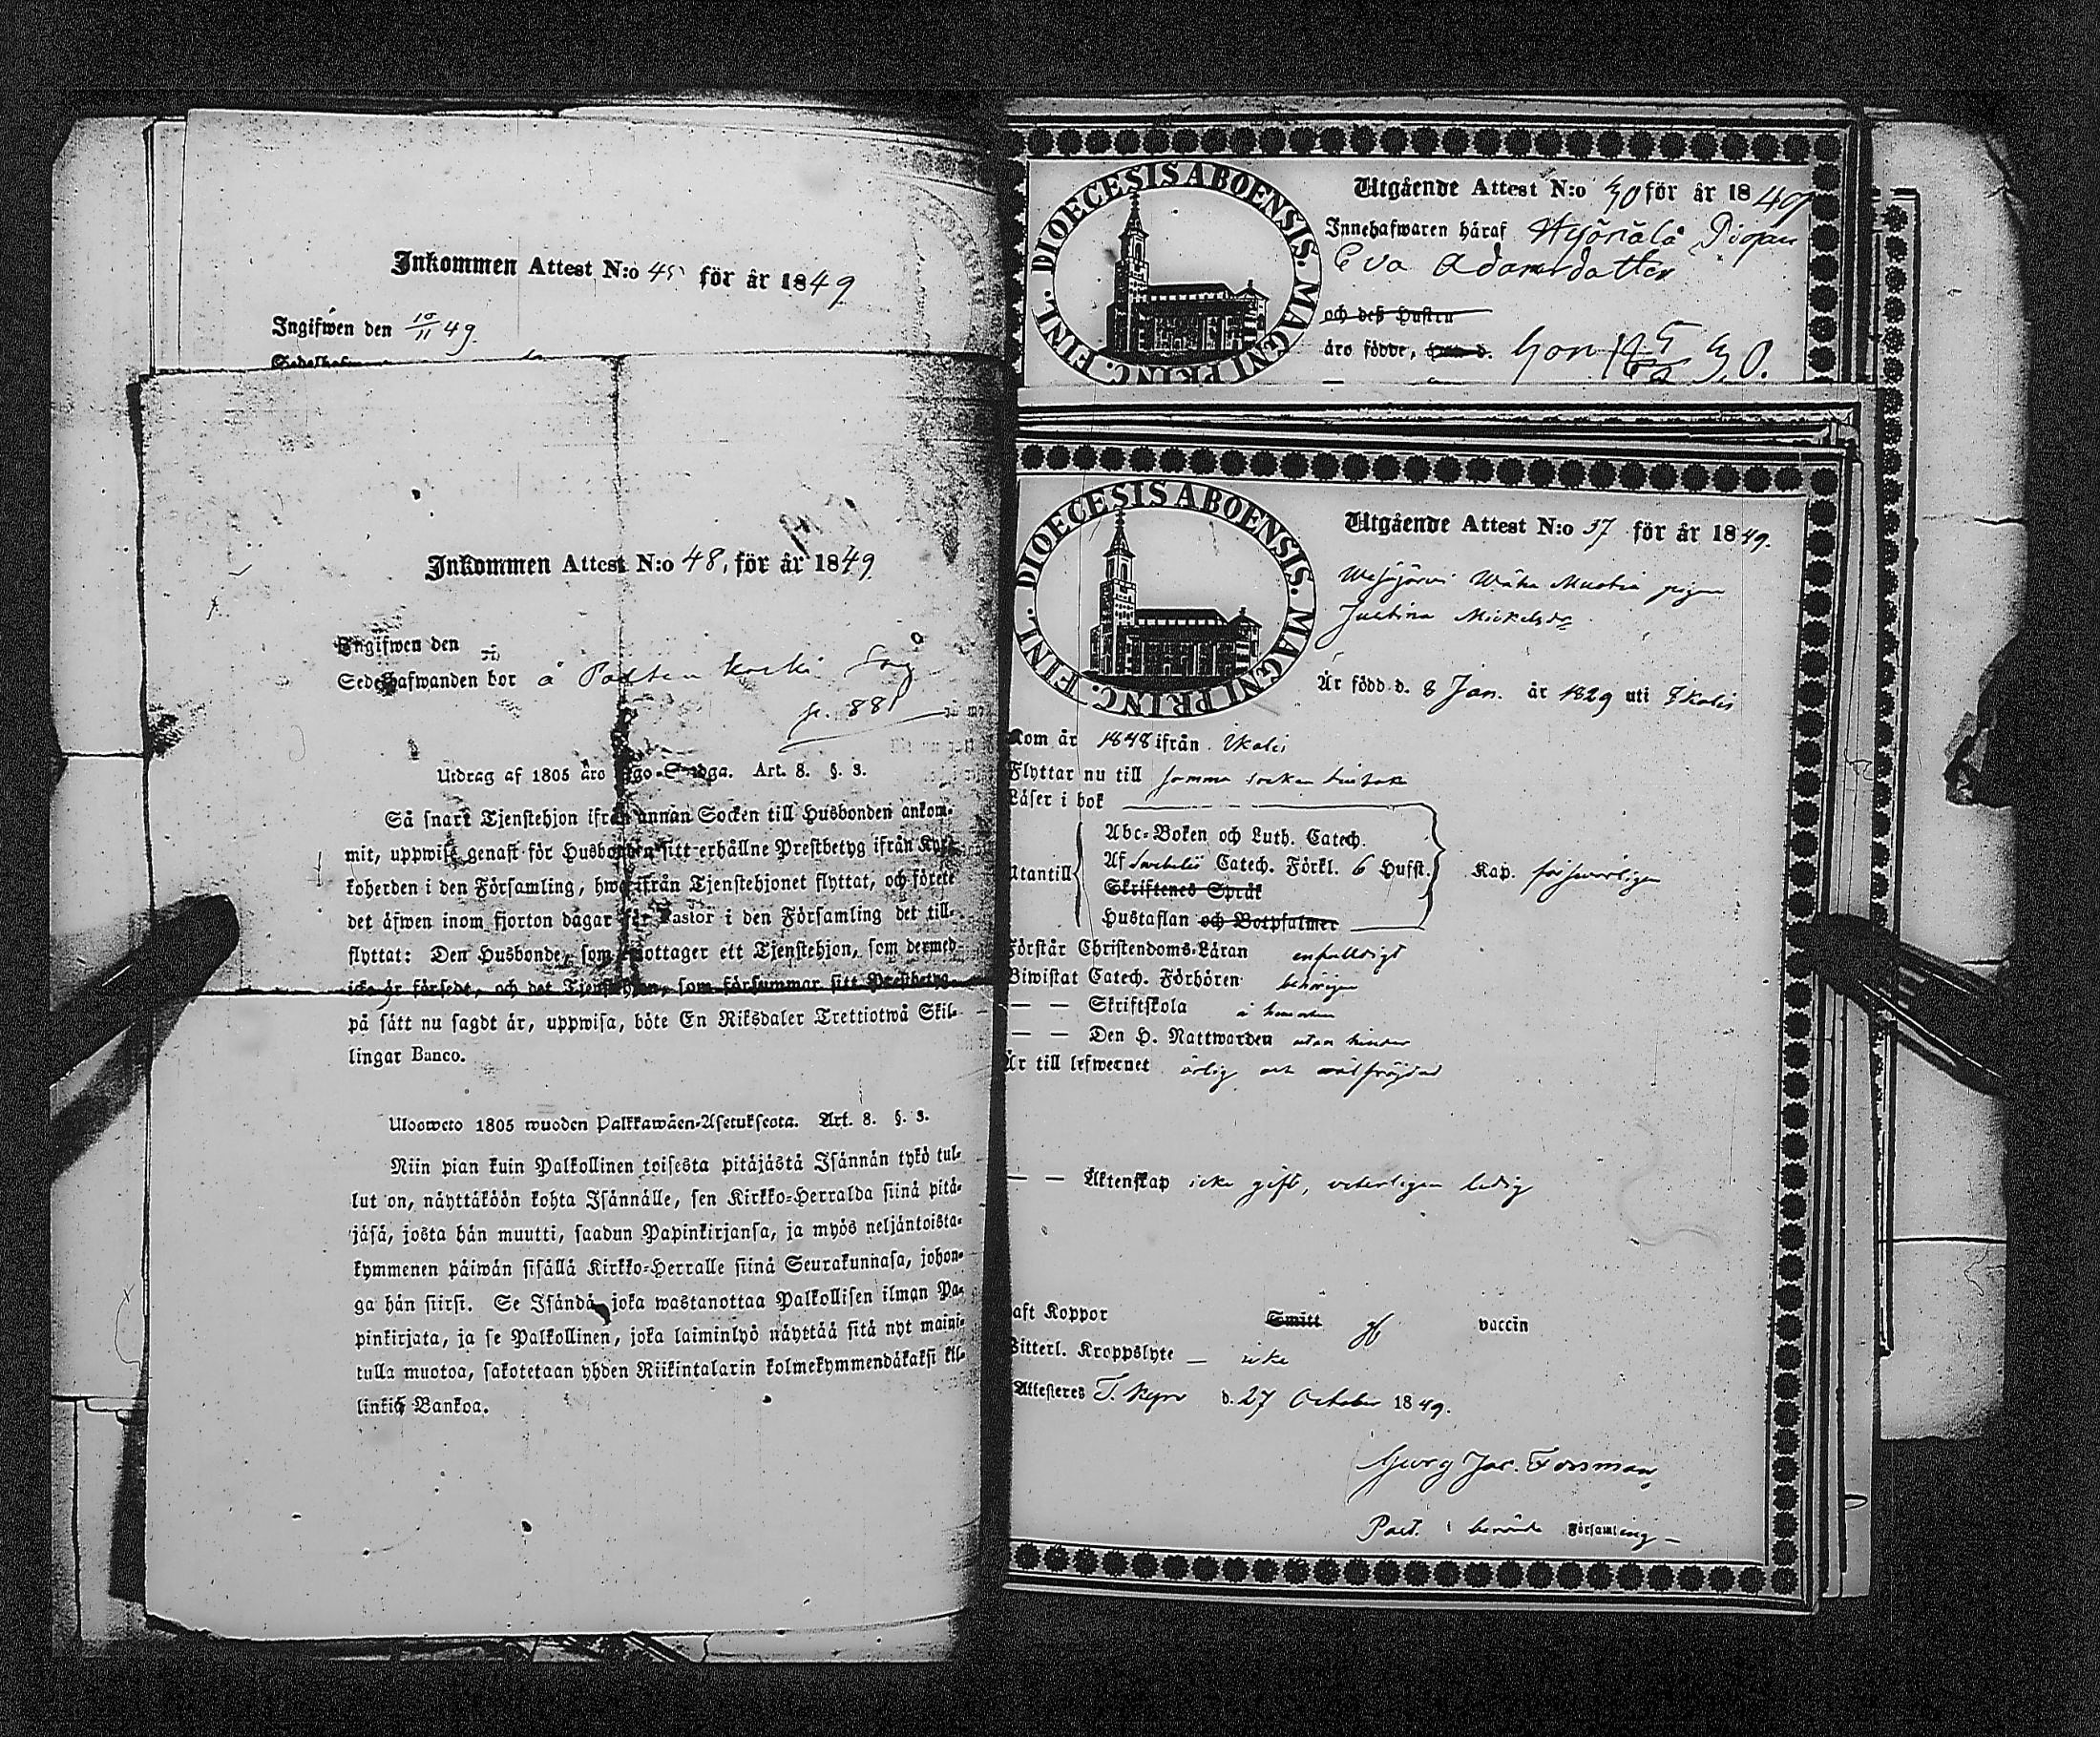 Inkommen Attest N:o 45 för år 1849
Ingifwen den 10/11 49.
Inkommen Attest N:o 48, för år 1849
Ingifwen den
Sedelhafwanden bor å
p. 881
Utdrag af 1805 åro Lego-Stadga. Art. 8. §. 3.
Så snart Tjenstehjon ifrån annan Socken till Husbonden ankom-
mit, uppwise genast för Husbonden sitt erhållne Prestbetyg ifrån Kyr-
koherden i den Församling, hwarifrån Tjenstehjonet flyttat, och förete
det äfwen inom fjorton dagar för Pastor i den Församling det till-
flyttat: Den Husbonde, som emottager ett Tjenstehjon, som dermed
icke är försedt, och det Tjenstehjon, som försummar sitt Prestbetyg
på sätt nu sagdt är, uppwisa, böte En Riksdaler Trettiotwå Skil-
lingar Banco.
Ulosweto 1805 wuoden Palkkawäen-Asetuksesta. Art. 8. §. 3.
Niin pian kuin Palkollinen toisesta pitäjästä Isännän tykö tul-
lut on, näyttäköön kohta Isännälle, sen Kirkko-Herralda siinä pitä-
jäsä, josta hän muutti, saadun Papinkirjansa, ja myös neljäntoista-
kymmenen päiwän sisällä Kirkko-Herralle siinä Seurakunnasa, johon-
ga hän siirsi. Se Isändä joka wastanottaa Palkollisen ilman Pa-
pinkirjata, ja se Palkollinen, joka laiminlyö näyttää sitä nyt maini-
tulla muotoa, sakotetaan yhden Riikintalarin kolmekymmendäkaksi kil-
linkiä Bankoa.
DIOECESIS ABOENSIS. MAGNI PRINC. FINL.
Utgående Attest N:o 30 för år 1849
Innehafwaren häraf Pigan
Eva Adamsdotter
och deß Hustru
äro födde, han d. hon 30.
DIOECESIS ABOENSIS. MAGNI PRINC. FINL.
Utgående Attest N:o 37 för år 1849.
pigan
Justina Mickelsdr
Är född d. 8 Jan. år 1829 uti Ikalis
Kom år 1848 ifrån Ikalis
Flyttar nu till samma socken tillbaka
Läser i bok
Abc-Boken och Luth. Catech.
Utantill Af Swebelii Catech. Förkl. 6 Hufst. Kap. försvarligen
Skriftenes Språk
Hustaflan och Botpsalmer
Förstår Christendoms-Läran enfaldigt
Biwistat Catech. Förhören behörigen
— — Skriftskola
— — Den H. Nattwarden utan hinder
Är till lefwernet ärlig och wälfrägdad
— — Äktenskap icke gift, veterligen ledig
Haft Koppor Smitt vaccin
Witterl. Kroppslyte — icke
Attesteres T. Kyro d. 27 October 1849.
Georg Jac. Forsman
Past. i berörde Församling